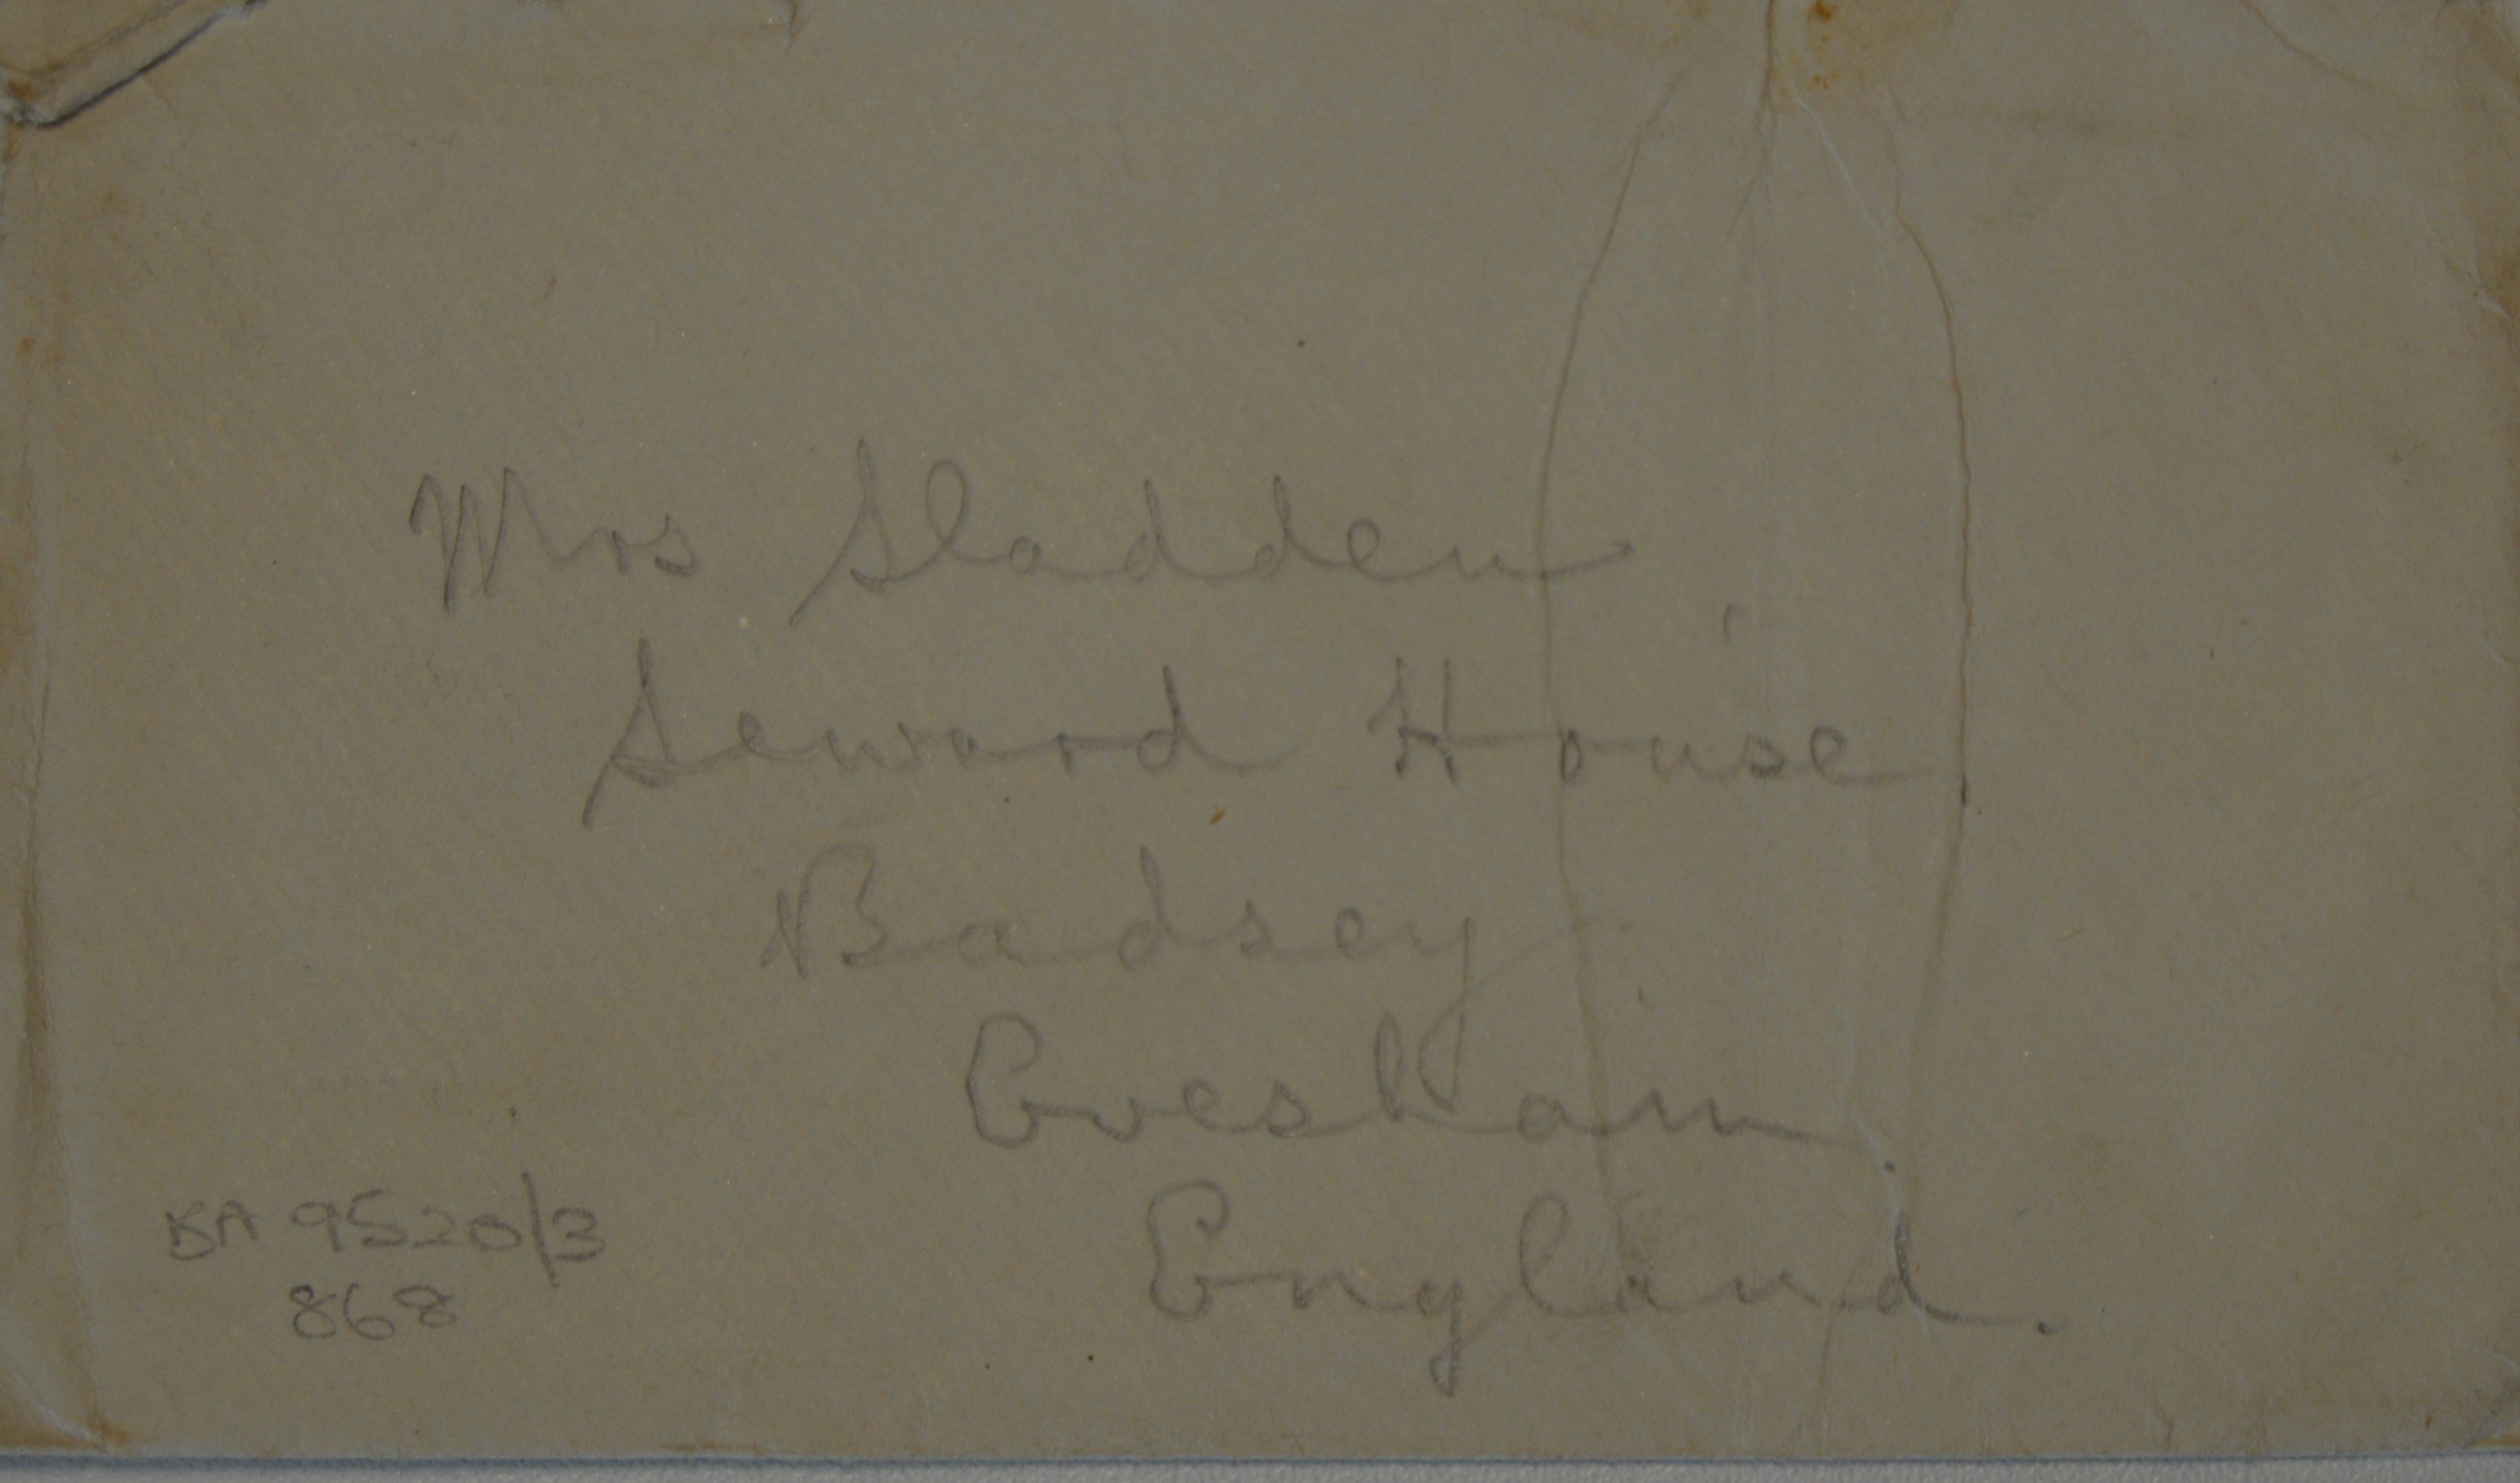 Mrs Sladden
Seward House
Badsey
Evesham
England.
BA 9520/3
868